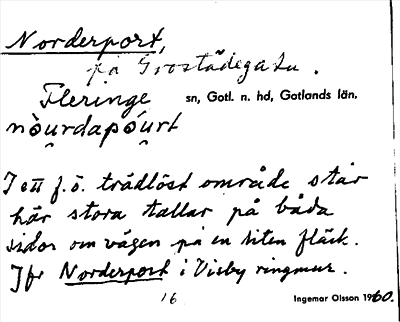 Norderport,
på Grostädegatu.
Fleringe sn, Gotl. n. hd, Gotlands län.
nòurdapóurt
I ett f.ö. trädlöst område står
här stora tallar på båda
sidor om vägen på en liten fläck.
Jfr Norderport i Visby ringmur.
16 Ingemar Olsson 1960.